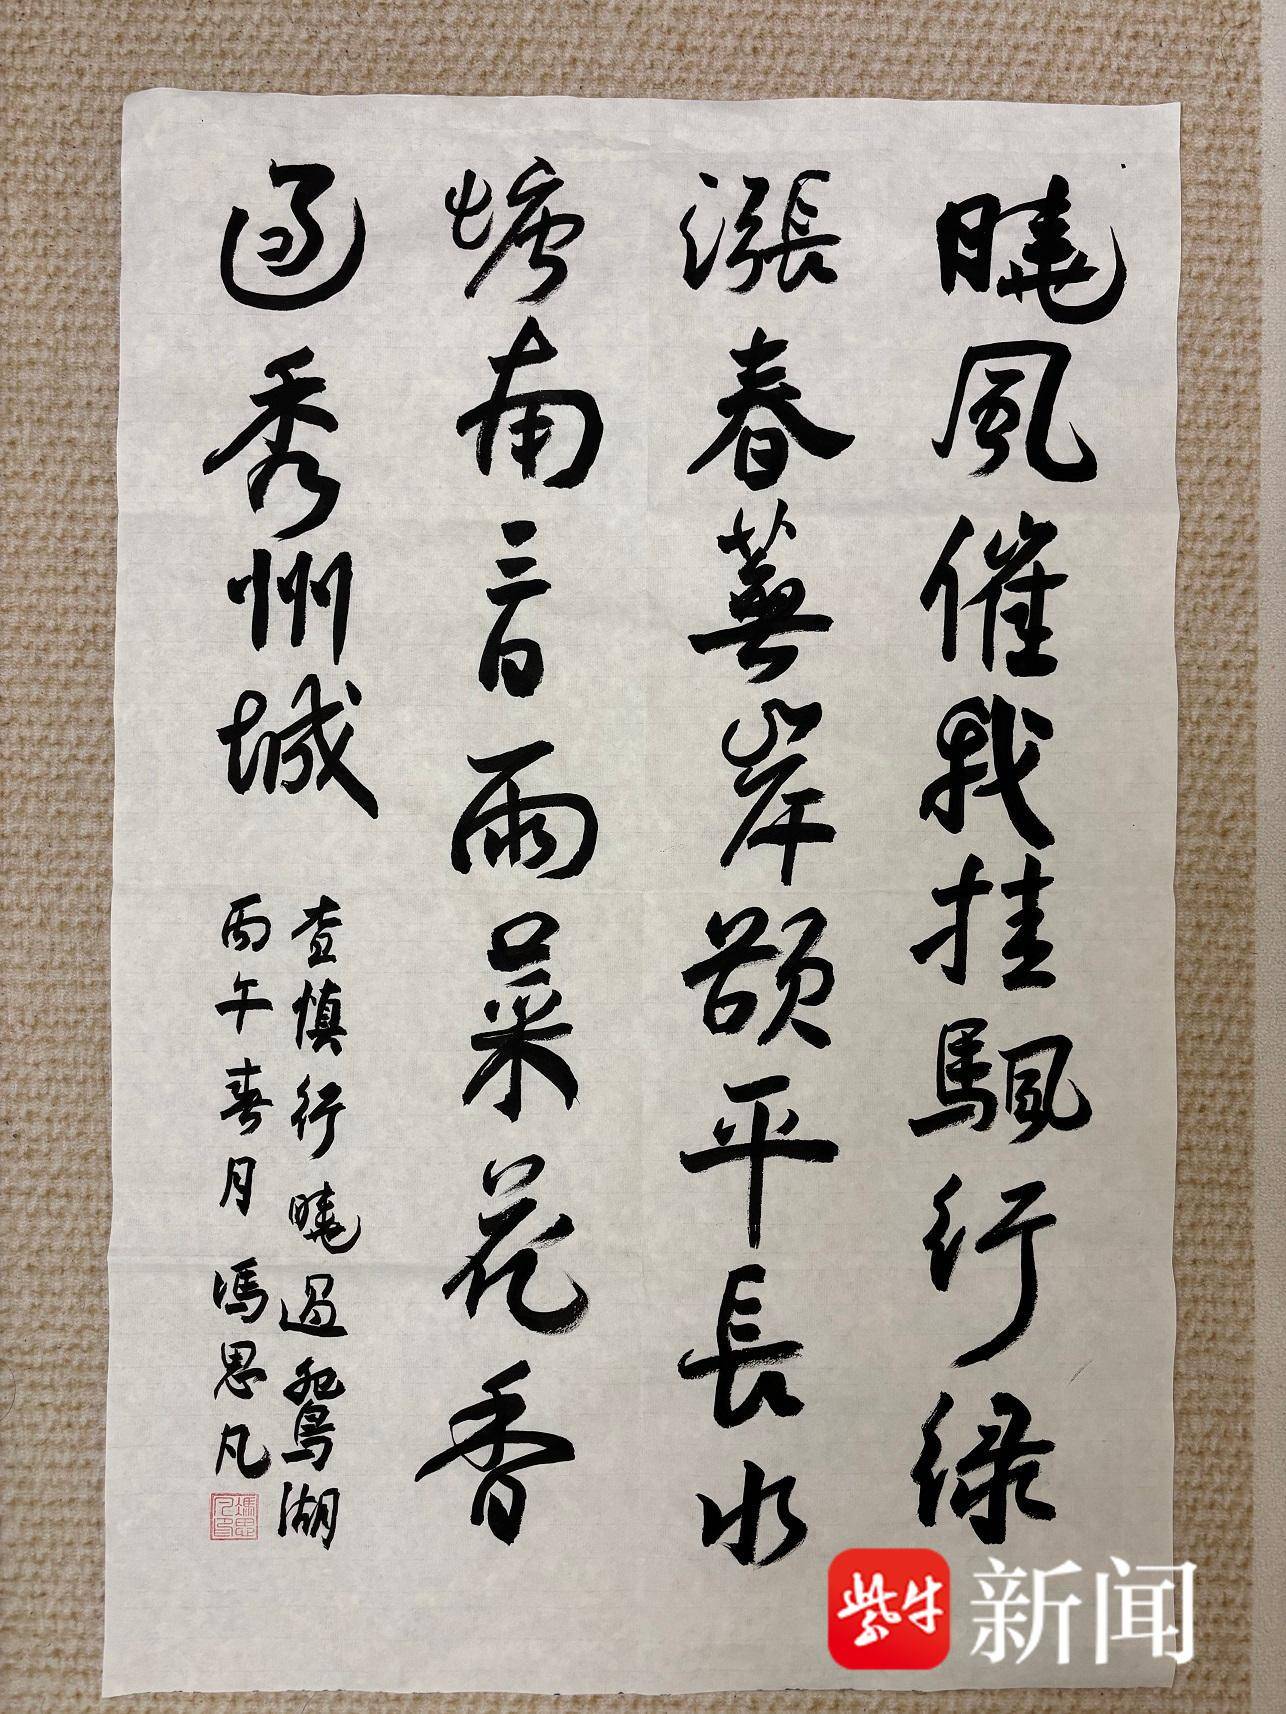 曉風催我挂颿行緑
漲春蕪岸欲平長水
塘南三日雨菜花香
過秀州城
查慎行曉過鴛湖
丙午春月馮思凡
馮思凡印
紫牛新闻